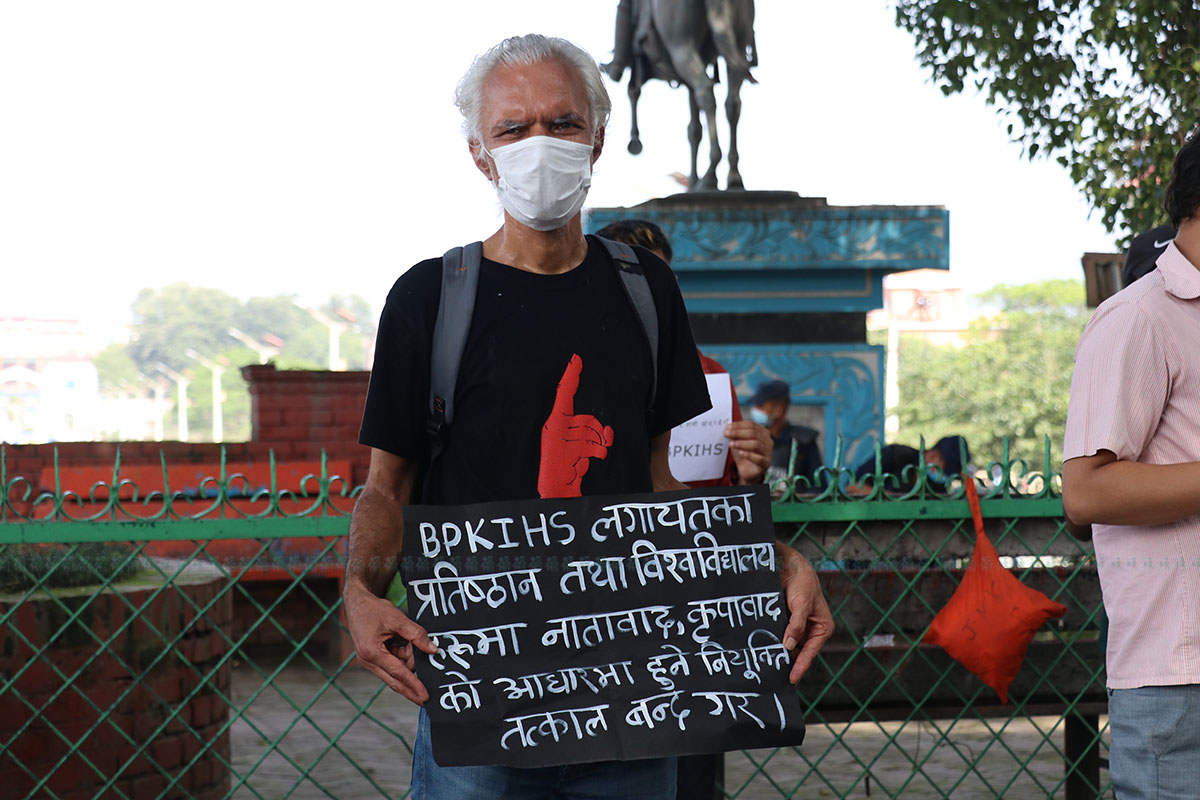 BPKIHS लगायतका
प्रतिष्ठान तथा विश्वविद्यालय
हरूमा नातावाद, कृपावाद
को आधारमा हुने नियूक्ति
तत्काल बन्द गर।
BPKIHS